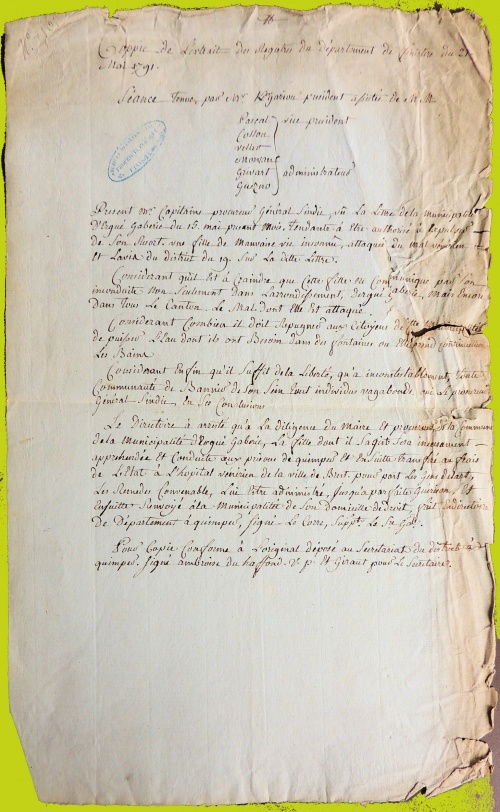 Coppie de L'extrait des Registres du département du finistere du 21
Mai 1791.
Séance tenue par Mr Kgariou president assisté de M M
Pascal vice president
Cosson
Vellet
Morvan
Gervart administrateurs
Guezno
Present mr. Capitaine procureur Général Sindic, vû La Lettre de la municipalité
D'Ergué Gaberic du 15. mai présent Mois, tendante à être authorisé à Repousser
de Son Ressort, une fille de Mauvaise vie inconnu, attaquée du mal vénérien
et L'avis du district du 19. Sur La ditte Lettre.
Considerant qu'il Est à Craindre que Cette fille ne Communique par Son
inconduite Non Seulement dans L'arrondissement, d'ergué gaberic, mais Encore
Dans tous Le Canton, Le Mal dont Elle Est attaqué
Considerant Combien il doit Repugner aux Citoyens de
de puiser L'Eau dont ils ont Besoin dans des fontaines ou Elle prend continuellement
Les Bains.
Considerant Enfin qu'il Suffit de la Liberté, qu'a incontestablement, toute
Communauté de Bannir de Son Sein tout individus vagabonds, oui Le procureur
Général Sindic En Ses Conclusions
Le Directoire à arreté qu'a La diligence du Maire et procureur de la Commune
de la Municipalité d'Ergué Gaberic, La fille dont il S'agit Sera incessament
apprehendée et Conduite aux prisons de quimper et Ensuite transferé au frais
de L'Etat à L'hopital vénérien de la ville de Brest, pour par Les Gens de L'art,
Les Remedes Convenable, Lui Etre administré, Jusqu'a parfaite Guerison, et
Ensuitte Renvoyé à la Municipalité de Son domicille de droit, fait en directoire
de Département à quimper, Signé Le Corre, Supplt. Le Sr. Gal.
Pour Copie Conforme à L'original déposé au Secretariat du district à
quimper. Signé ambroise du haffond. v. p. Et Giraut pour Le Secretaire.